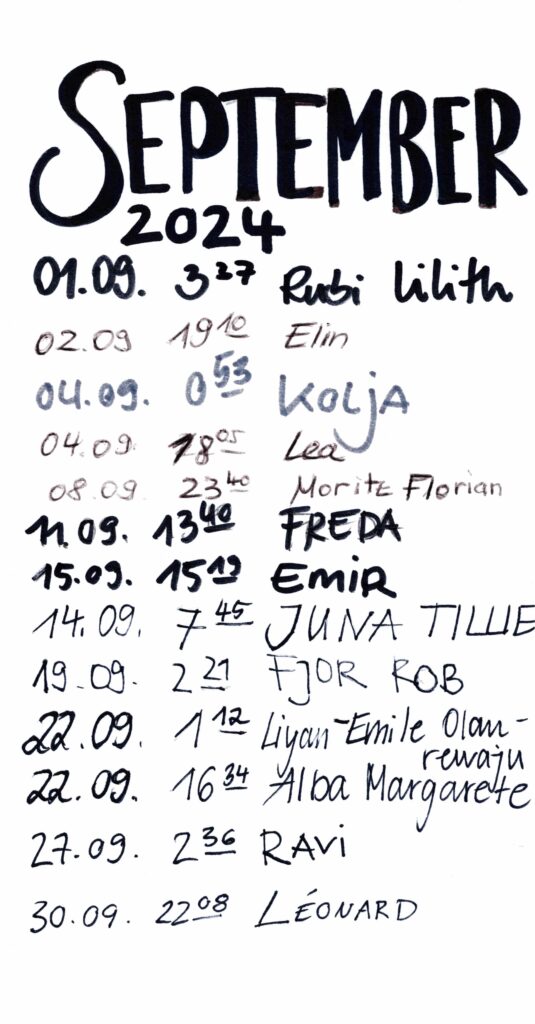 SEPTEMBER
2024
01.09. 3 27 Rubi Lilith
02.09 19 10 Elin
04.09. 0 53 KOLJA
04.09. 18 05 Lea
08.09. 23 40 Moritz Florian
11.09. 13 40 FREDA
15.09. 15 19 EMIR
14.09. 7 45 JUNA TILLIE
19.09. 2 21 FJOR ROB
22.09. 1 12 Liyan-Emile Olan-
rewaju
22.09. 16 34 Alba Margarete
27.09. 2 36 RAVI
30.09. 22 08 LÉONARD